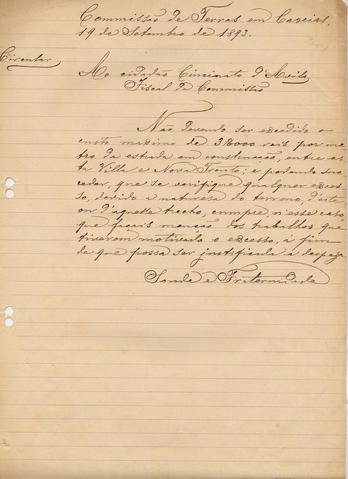 Commissão de Terras em Caxias,
19 de Setembro de 1893.
Circular
Ao cidadão Cincinato d'Avila
Fiscal da Commissão
Não devendo ser excedido o
custo maximo de 3$000 reis por me-
tro da estrada em construcção, entre es-
ta Villa e Nova Trento; e podendo suc-
ceder, que se verifique qualquer exces-
so, devido a natureza do terreno, d'este
ou d'aquelle trecho, cumpre, n'esse caso,
que façais menção dos trabalhos que
tiverem motivado o excesso, á fim
de que possa ser justificada a despeza
Saude e Fraternidade